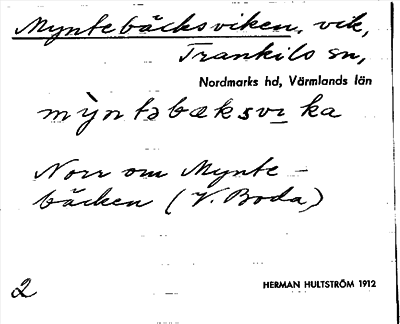 Myntebäcksviken, vik,
Trankils sn,
Nordmarks hd, Värmlands län
mỳntəbæksvi̲ka
Norr om Mynte-
bäcken (V. Boda)
2
HERMAN HULTSTRÖM 1912